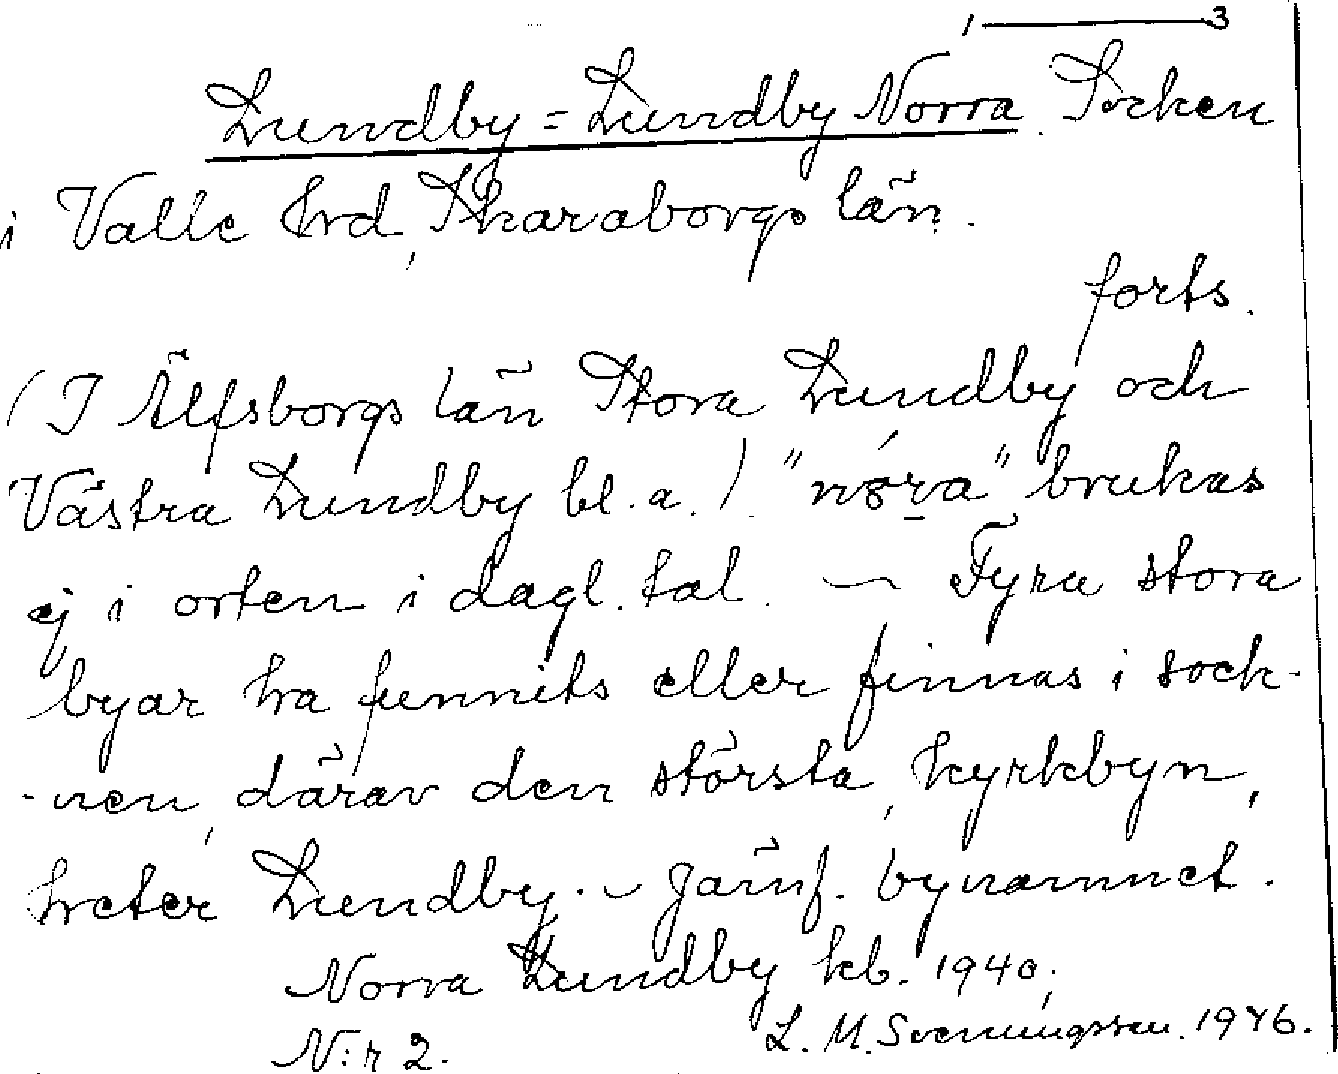 1 — 3
Lundby = Lundby Norra Socken
i Valle hrd, Skaraborgs län.
forts.
(I Älfsborgs län Stora Lundby och
Västra Lundby bl.a.). "nǿra" brukas
ej i orten i dagl. tal. — Fyra stora
byar ha funnits eller finnas i sock-
-nen, därav den största, kyrkbyn,
heter Lundby. — Jämf. bynamnet.
Norra Lundby kb. 1940;
N:r 2. L. M. Svenungsson. 1946.